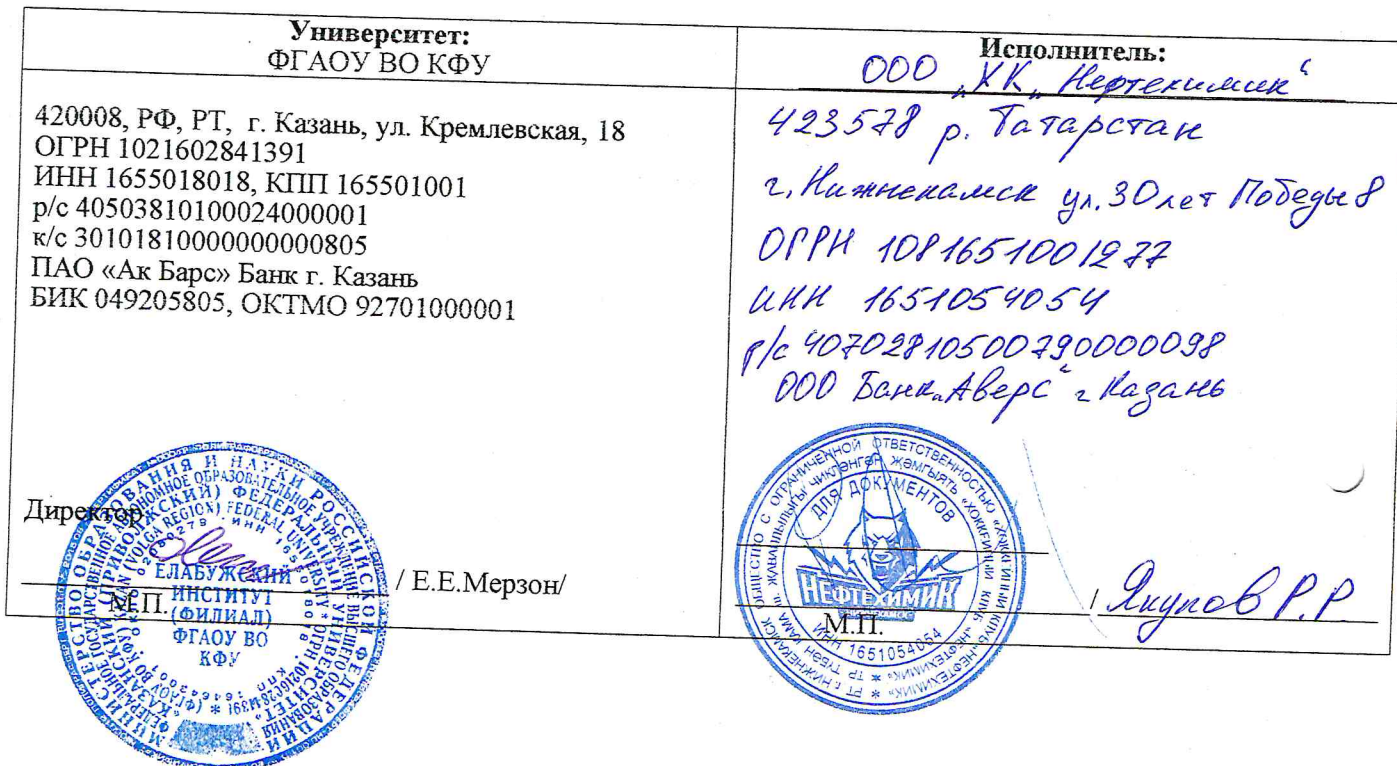 Университет:
ФГАОУ ВО КФУ
420008, РФ, РТ, г. Казань, ул. Кремлевская, 18
ОГРН 1021602841391
ИНН 1655018018, КПП 165501001
р/с 40503810100024000001
к/с 30101810000000000805
ПАО «Ак Барс» Банк г. Казань
БИК 049205805, ОКТМО 92701000001
Директор
/ Е.Е.Мерзон/
М.П.
МИНИСТЕРСТВО ОБРАЗОВАНИЯ И НАУКИ РОССИЙСКОЙ ФЕДЕРАЦИИ
ЕЛАБУЖСКИЙ
ИНСТИТУТ
(ФИЛИАЛ)
ФГАОУ ВО
КФУ
Исполнитель:
ООО „ХК „Нефтехимик“
423578 р. Татарстан
г. Нижнекамск ул. 30 лет Победы 8
ОГРН 1081651001277
ИНН 1651054054
р/с 40702810500790000098
ООО Банк „Аверс“ г Казань
ДЛЯ ДОКУМЕНТОВ
НЕФТЕХИМИК
ИНН 1651054054
М.П.
/ Якупов Р.Р